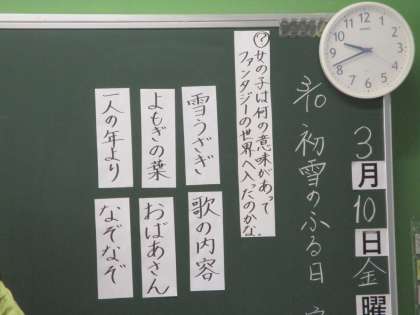 3月10日金曜
初雪のふる日
?女の子は何の意味があって
ファンタジーの世界へ入ったのかな。
雪うさぎ
歌の内容
よもぎの葉
おばあさん
一人の年より
なぞなぞ